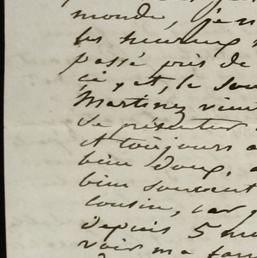 monde, je n
les heureux
passé près de
ici, et, le sou
Martinez vien
se présenter
et toujours a
bien doux, a
bien souvent
cousin, car j
depuis 5 mo
voir ma fam